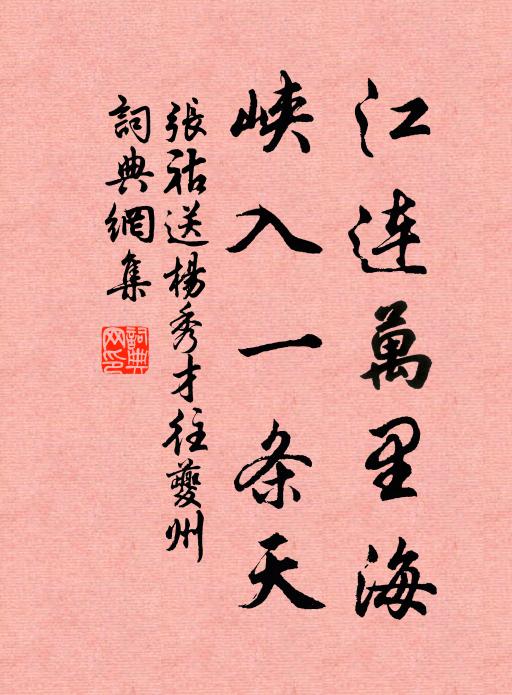 江连萬里海
峡入一条天
張祜送楊秀才往夔州
詞典網集
詞典网印